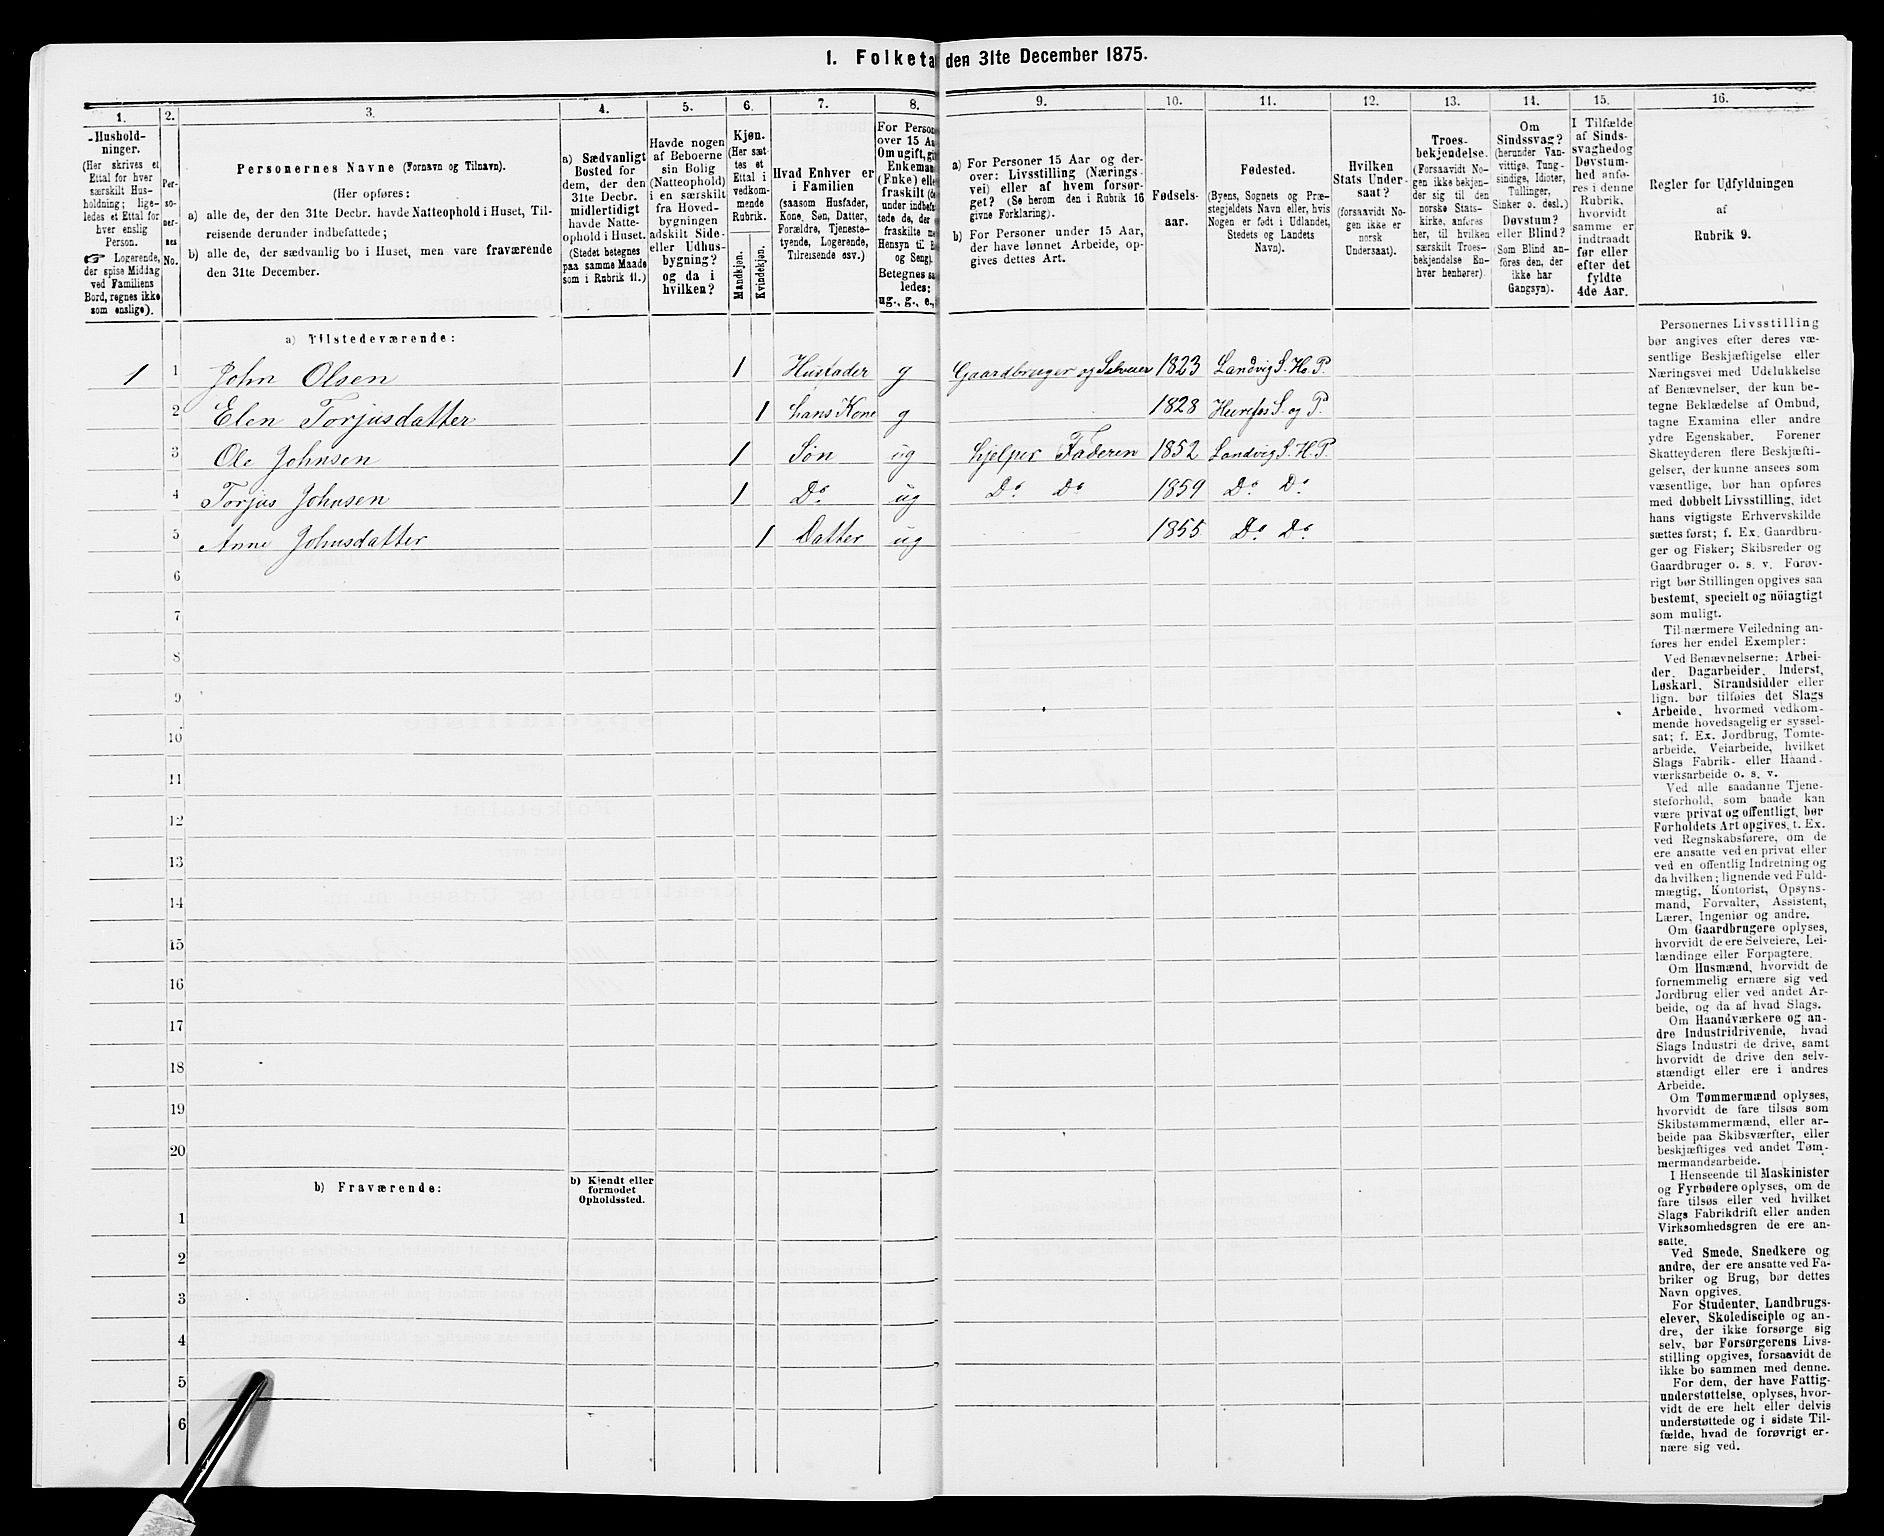 1. Folketa den 31te December 1875.
1. 2. 3. 4. 5. 6. 7. 8. 9. 10. 11. 12. 13. 14. 15. 16.
Hushold-
ninger.
(Her skrives et
Ettal for hver
særskilt Hus-
holdning; lige-
ledes et Ettal for
hver enslig
Person.
☞ Logerende,
der spise Middag
ved Familiens
Bord, regnes ikke
som enslige).
Per-
so-
ner-
nes
No.
Personernes Navne (Fornavn og Tilnavn).
(Her opføres:
a) alle de, der den 31te Decbr. havde Natteophold i Huset, Til-
reisende derunder indbefattede;
b) alle de, der sædvanlig bo i Huset, men vare fraværende
den 31te December.
a) Sædvanligt
Bosted for
dem, der den
31te Decbr.
midlertidigt
havde Natte-
ophold i Huset.
(Stedet betegnes
paa samme Maade
som i Rubrik 11.)
Havde nogen
af Beboerne
sin Bolig
(Natteophold)
i en særskilt
fra Hoved-
bygningen
adskilt Side-
eller Udhus-
bygning?
og da i
hvilken?
Kjøn.
(Her sæt-
tes et
Ettal i
vedkom-
mende
Rubrik.
Mandkjøn.
Kvindekjøn.
Hvad Enhver er
i Familien
(saasom Husfader,
Kone, Søn, Datter,
Forældre, Tjeneste-
tyende, Logerende,
Tilreisende osv.)
For Person
over 15 Aa
Om ugift, gi
Enkeman
(Enke) elle
fraskilt (de
under indbefa
tede de, der
fraskilte me
Hensyn til B
og Seng).
Betegnes sa
ledes:
ug., g., e.,
a) For Personer 15 Aar og der-
over: Livsstilling (Nærings-
vei) eller af hvem forsør-
get? (Se herom den i Rubrik 16
givne Forklaring).
b) For Personer under 15 Aar,
der have lønnet Arbeide, op-
gives dettes Art.
Fødsels-
aar.
Fødested.
(Byens, Sognets og Præ-
stegjeldets Navn eller, hvis
Nogen er født i Udlandet,
Stedets og Landets
Navn).
Hvilken
Stats Under-
saat?
(forsaavidt No-
gen ikke er
norsk
Undersaat).
Troes-
bekjendelse.
(Forsaavidt No-
gen ikke bekjen-
der sig til den
norske Stats-
kirke, anføres
her, til hvilken
særskilt Troes-
bekjendelse En-
hver henhører).
Om
Sindssvag?
(herunder Van-
vittige, Tung-
sindige, Idioter,
Tullinger,
Sinker o. desl.)
Døvstum?
eller Blind?
(Som Blind an-
føres den, der
ikke har
Gangsyn).
I Tilfælde
af Sinds-
svaghed og
Døvstum-
hed anfø-
res i denne
Rubrik,
hvorvidt
samme er
indtraadt
før eller
efter det
fyldte
4de Aar.
Regler for Udfyldningen
af
Rubrik 9.
a) Tilstedeværende:
1 1 John Olsen 1 Husfader g Gaardbruger og Selveier 1823 Landvig S. H. P.
2 Elen Torjusdatter 1 hans Kone g 1828 S. og P.
3 Ole Johnsen 1 Søn ug hjelper Faderen 1852 Landvig S. H. P.
4 Torjus Johnsen 1 Do. ug Do. Do 1859 Do Do.
5 Anne Johnsdatter 1 Datter ug 1855 Do. Do.
6
7
8
9
10
11
12
13
14
15
16
17
18
19
20
b) Fraværende:
b) Kjendt eller
formodet
Opholdssted.
1
2
3
4
5
6
Personernes Livsstilling
bør angives efter deres væ-
sentlige Beskjæftigelse eller
Næringsvei med Udelukkelse
af Benævnelser, der kun be-
tegne Beklædelse af Ombud,
tagne Examina eller andre
ydre Egenskaber. Forener
Skatteyderen flere Beskjæfti-
gelser, der kunne ansees som
væsentlige, bør han opføres
med dobbelt Livsstilling, idet
hans vigtigste Erhvervskilde
sættes først; f. Ex. Gaardbru-
ger og Fisker; Skibsreder og
Gaardbruger o. s. v. Forøv-
rigt bør Stillingen opgives saa
bestemt, specielt og nöiagtigt
som muligt.
Til nærmere Veiledning an-
føres her endel Exempler:
Ved Benævnelserne: Arbei-
der, Dagarbeider, Inderst,
Løskarl, Strandsidder eller
lign. bør tilføies det Slags
Arbeide, hvormed vedkom-
mende hovedsagelig er syssel-
sat; f. Ex. Jordbrug, Tomte-
arbeide, Veiarbeide, hvilket
Slags Fabrik- eller Haand-
værksarbeide o. s. v.
Ved alle saadanne Tjene-
steforhold, som baade kan
være privat og offentligt, bør
Forholdets Art opgives, t. Ex.
ved Regnskabsførere, om de
ere ansatte ved en privat eller
ved en offentlig Indretning og
da hvilken; lignende ved Fuld-
mægtig, Kontorist, Opsyns-
mand, Forvalter, Assistent,
Lærer, Ingeniør og andre.
Om Gaardbrugere oplyses,
hvorvidt de ere Selveiere, Lei-
lændinge eller Forpagtere.
Om Husmænd, hvorvidt de
fornemmelig ernære sig ved
Jordbrug eller ved andet Ar-
beide, og da af hvad Slags.
Om Haandværkere og an-
dre Industridrivende, hvad
Slags Industri de drive, samt
hvorvidt de drive den selv-
stændigt eller ere i andres
Arbeide.
Om Tømmermænd oplyses,
hvorvidt de fare tilsøs som
Skibstømmermænd, eller ar-
beide paa Skibsværfter, eller
beskjæftiges ved andet Tøm-
mermandsarbeide.
I Henseende til Maskinister
og Fyrbødere oplyses, om de
fare tilsøs eller ved hvilket
Slags Fabrikdrift eller anden
Virksomhedsgren de ere an-
satte.
Ved Smede, Snedkere og
andre, der ere ansatte ved Fa-
briker og Brug, bør dettes
Navn opgives.
For Studenter, Landbrugs-
elever, Skoledisciple og an-
dre, der ikke forsørge sig
selv, bør Forsørgerens Livs-
stilling opgives, forsaavidt de
ikke bo sammen med denne.
For dem, der have Fattig-
understøttelse, oplyses, hvor-
vidt de ere helt eller delvis
understøttede og i sidste Til-
fælde, hvad de forøvrigt er-
nære sig ved.